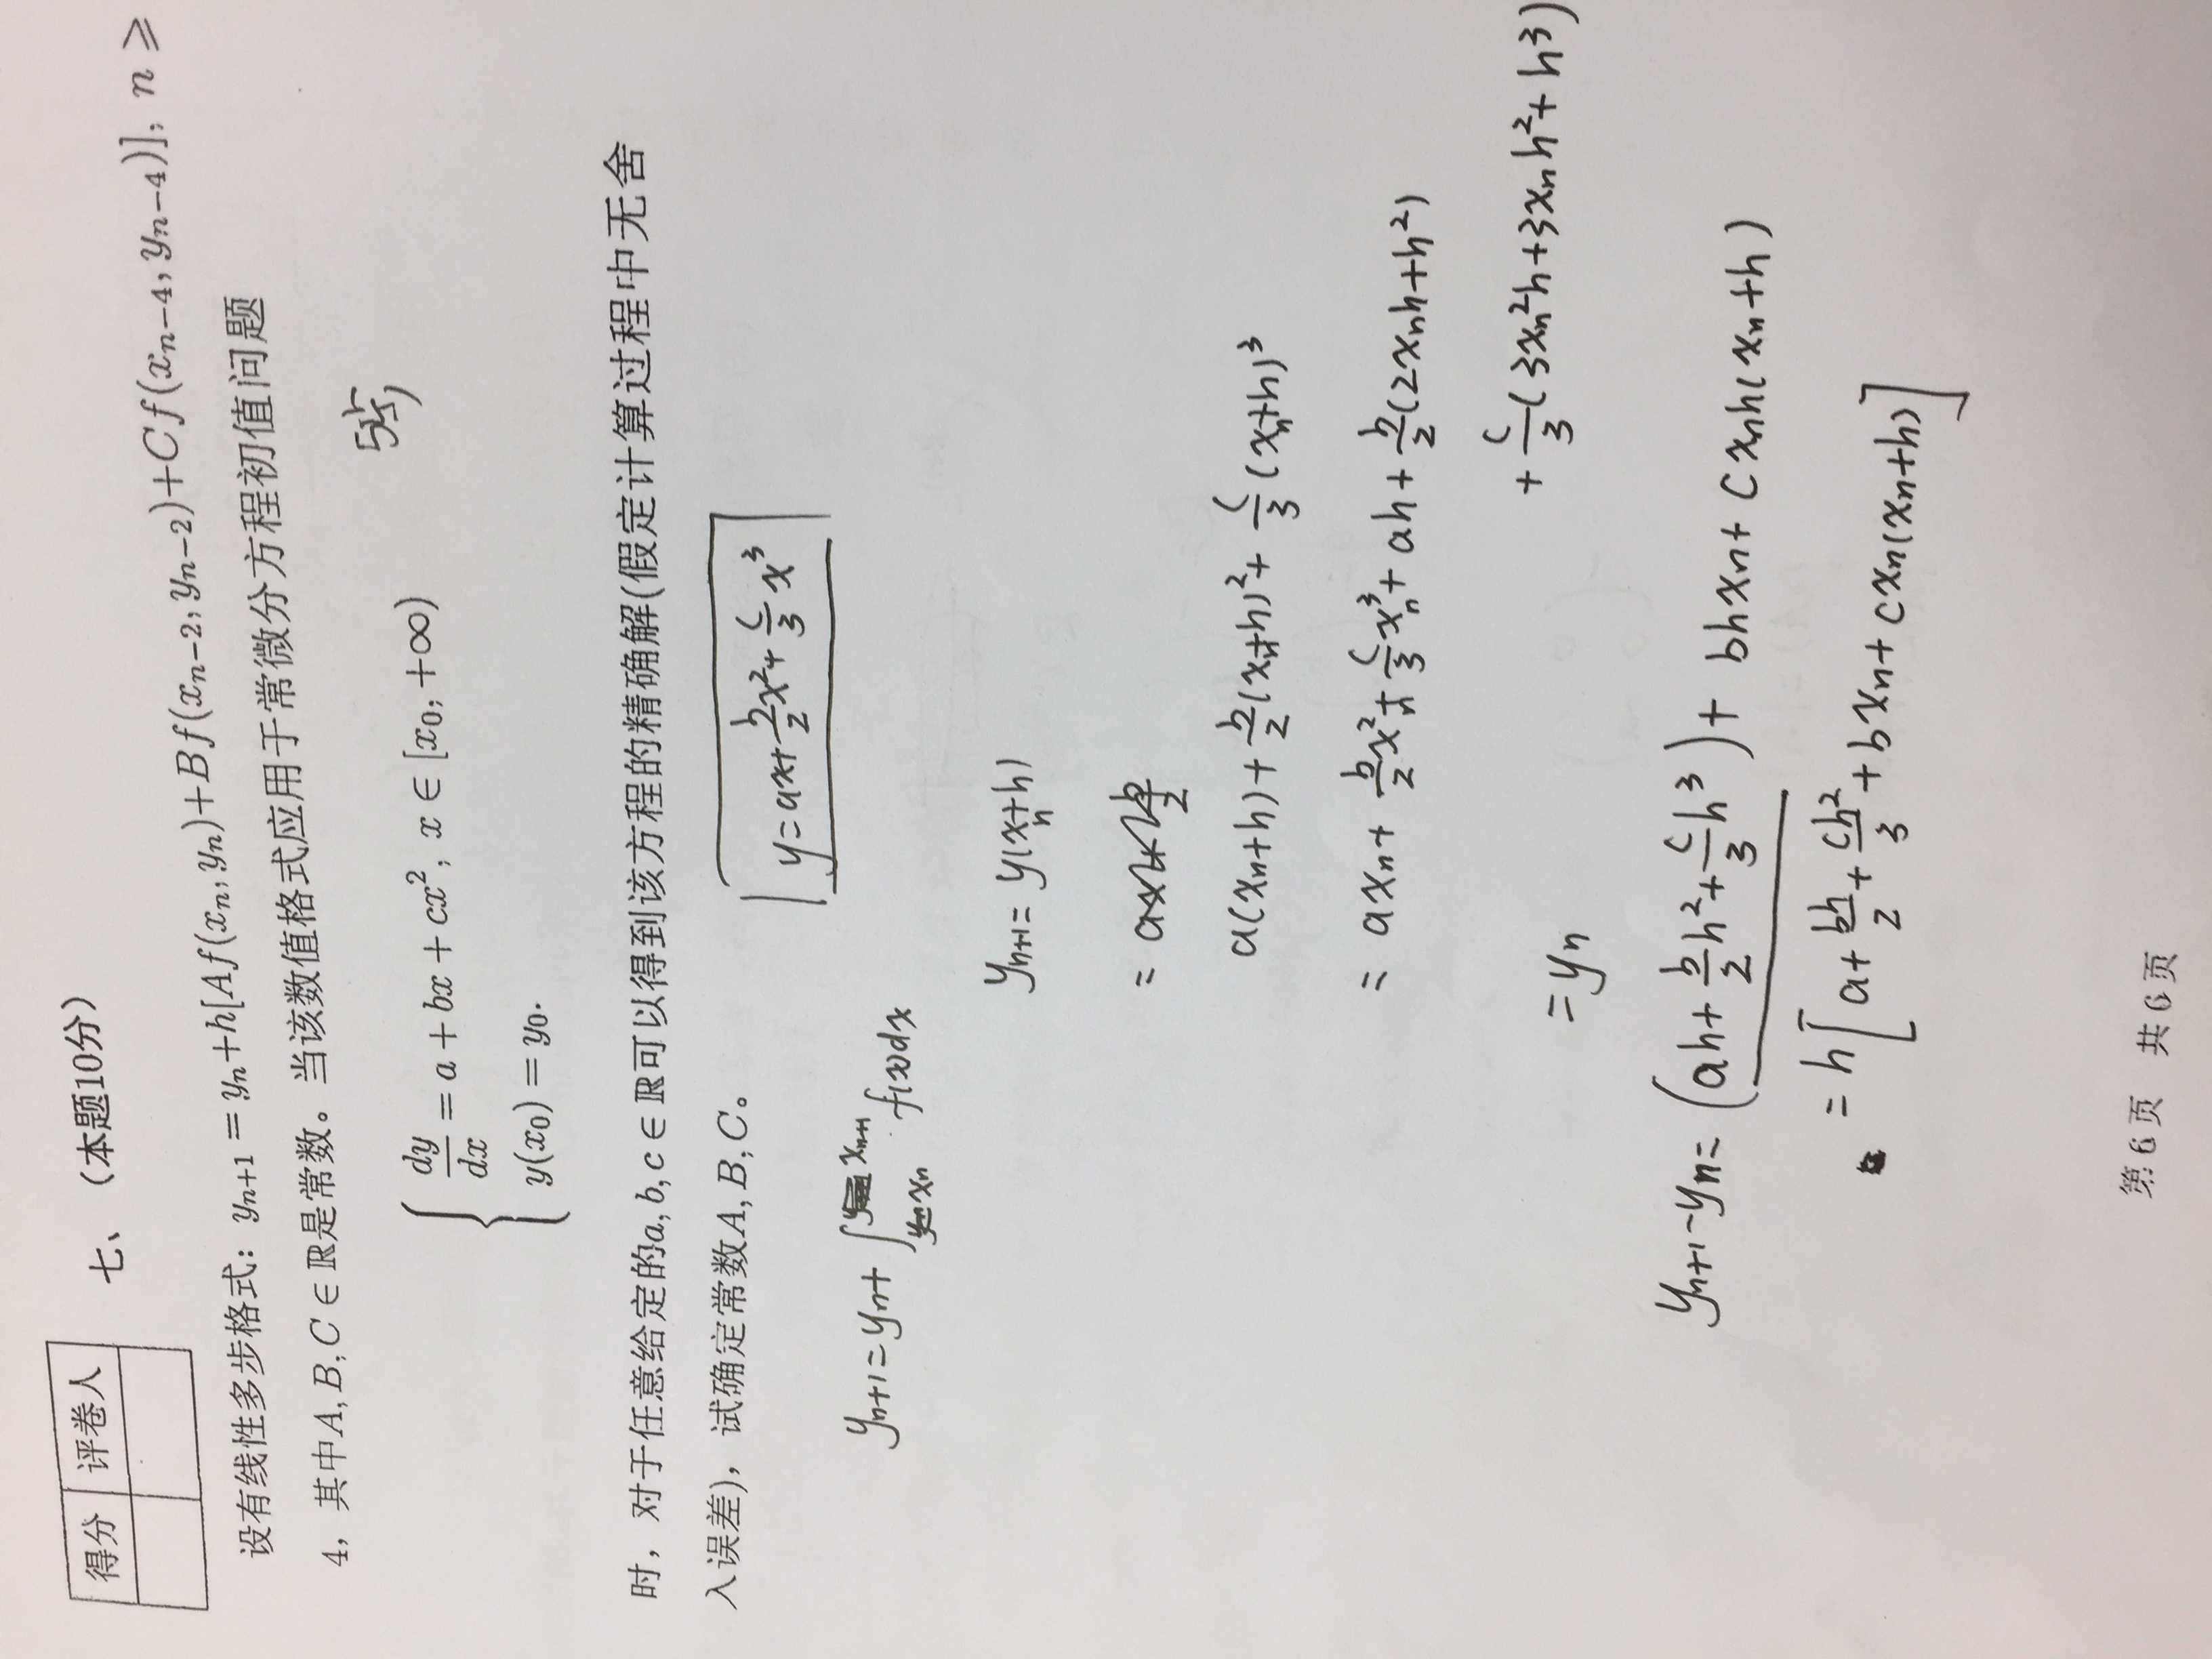 得分 评卷人
七、（本题10分）
设有线性多步格式：y_{n+1} = y_n+h[Af(x_n, y_n)+Bf(x_{n−2}, y_{n−2})+Cf(x_{n−4}, y_{n−4})], n ⩾
4，其中A, B, C ∈ ℝ是常数。当该数值格式应用于常微分方程初值问题
dy/dx = a + bx + cx², x ∈ [x₀, +∞)
y(x₀) = y₀.
时，对于任意给定的a, b, c ∈ ℝ可以得到该方程的精确解(假定计算过程中无舍
入误差)，试确定常数A, B, C。
y=ax+b/2x²+c/3x³
y_{n+1}=y_n+∫_{x_n}^{x_{n+1}} f(x)dx
y_{n+1}=y(x_n+h)
=
a(x_n+h)+b/2(x_n+h)²+c/3(x_n+h)³
= ax_n+b/2x_n²+c/3x_n³+ah+b/2(2x_nh+h²)
+c/3(3x_n²h+3x_nh²+h³)
=y_n
y_{n+1}-y_n=(ah+b/2h²+c/3h³)+bhx_n+cx_nh(x_n+h)
=h[a+bh/2+ch²/3+bx_n+cx_n(x_n+h)]
第6页 共6页